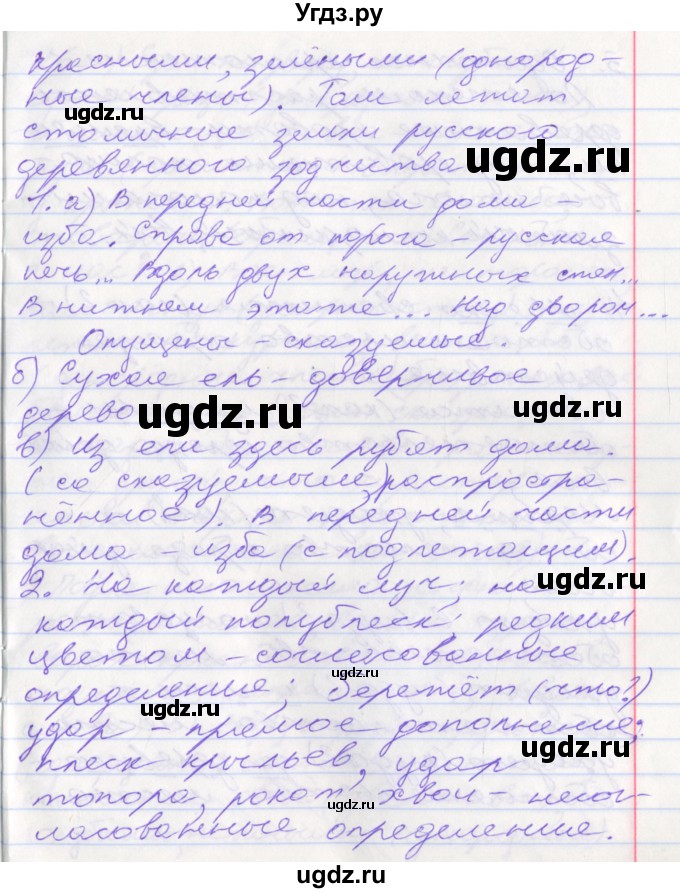 Угдз.ру
красными, зелёными (однород-
ные члены). Там лежат
столичные земли русского
деревянного зодчества
ugdz.ru
1. а) В передней части дома –
изба. Справа от порога – русская
печь... Вдоль двух наружных стен...
В нижнем этаже... Над двором...
Опущены – сказуемые.
ugdz.ru
б) Сухая ель – доверчивое
дерево
ugdz.ru
в) Из ели здесь рубят дома.
(со сказуемым распростра-
нённое). В передней части
дома – изба (с подлежащим).
2. На каждый луч; на
ugdz.ru
каждый полублеск; редким
цветом – согласованные
ugdz.ru
определение; бережёт (что?)
ugdz.ru
удар – прямое дополнение;
ugdz.ru
плеск крыльев, удар
топора, рокот хвои – несог-
ugdz.ru
ласованные определение.
ugdz.ru